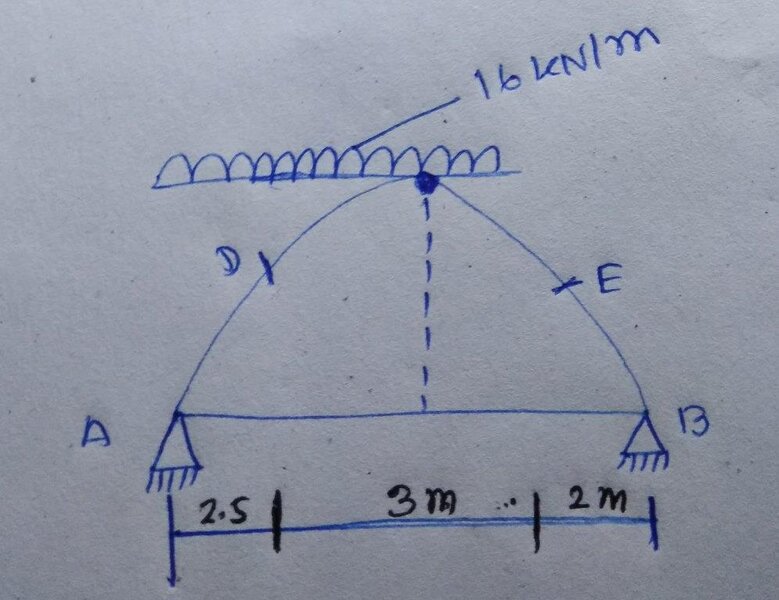 16 kN/m
D
E
A
B
2.5 3m 2m